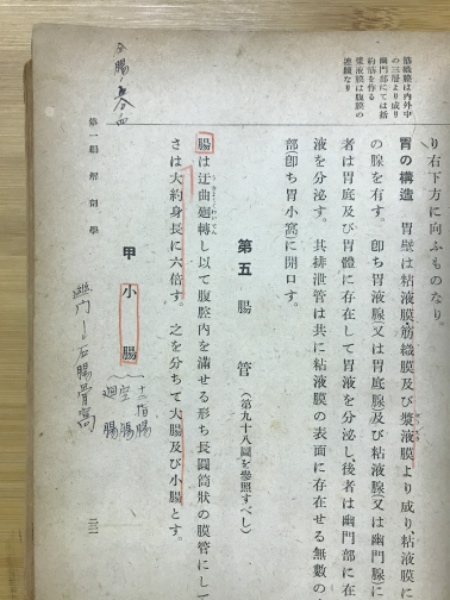 筋織膜は內外中
の三層より成り
幽門部にては括
約筋を作る
漿液膜は腹膜の
連續なり
り右下方に向ふものなり。
胃の構造 胃壁は粘液膜、筋織膜及び漿液膜より成り、粘液膜に
の腺を有す。卽ち胃液腺(又は胃底腺)及び粘液腺(又は幽門腺)に
者は胃底及び胃體に存在して胃液を分泌し、後者は幽門部に在
液を分泌す。其排泄管は共に粘液膜の表面に存在せる無數の
部(卽ち胃小窩)に開口す。
第五 腸管 (第九十八圖を參照すべし)
腸は迂曲廻轉し以て腹腔內を滿せる形ち長圓筒狀の膜管にして
さは大約身長に六倍す。之を分ちて大腸及び小腸とす。
甲 小腸
十二指腸
空腸
廻腸
幽門 石腸骨窩
第一編 解剖學
三一